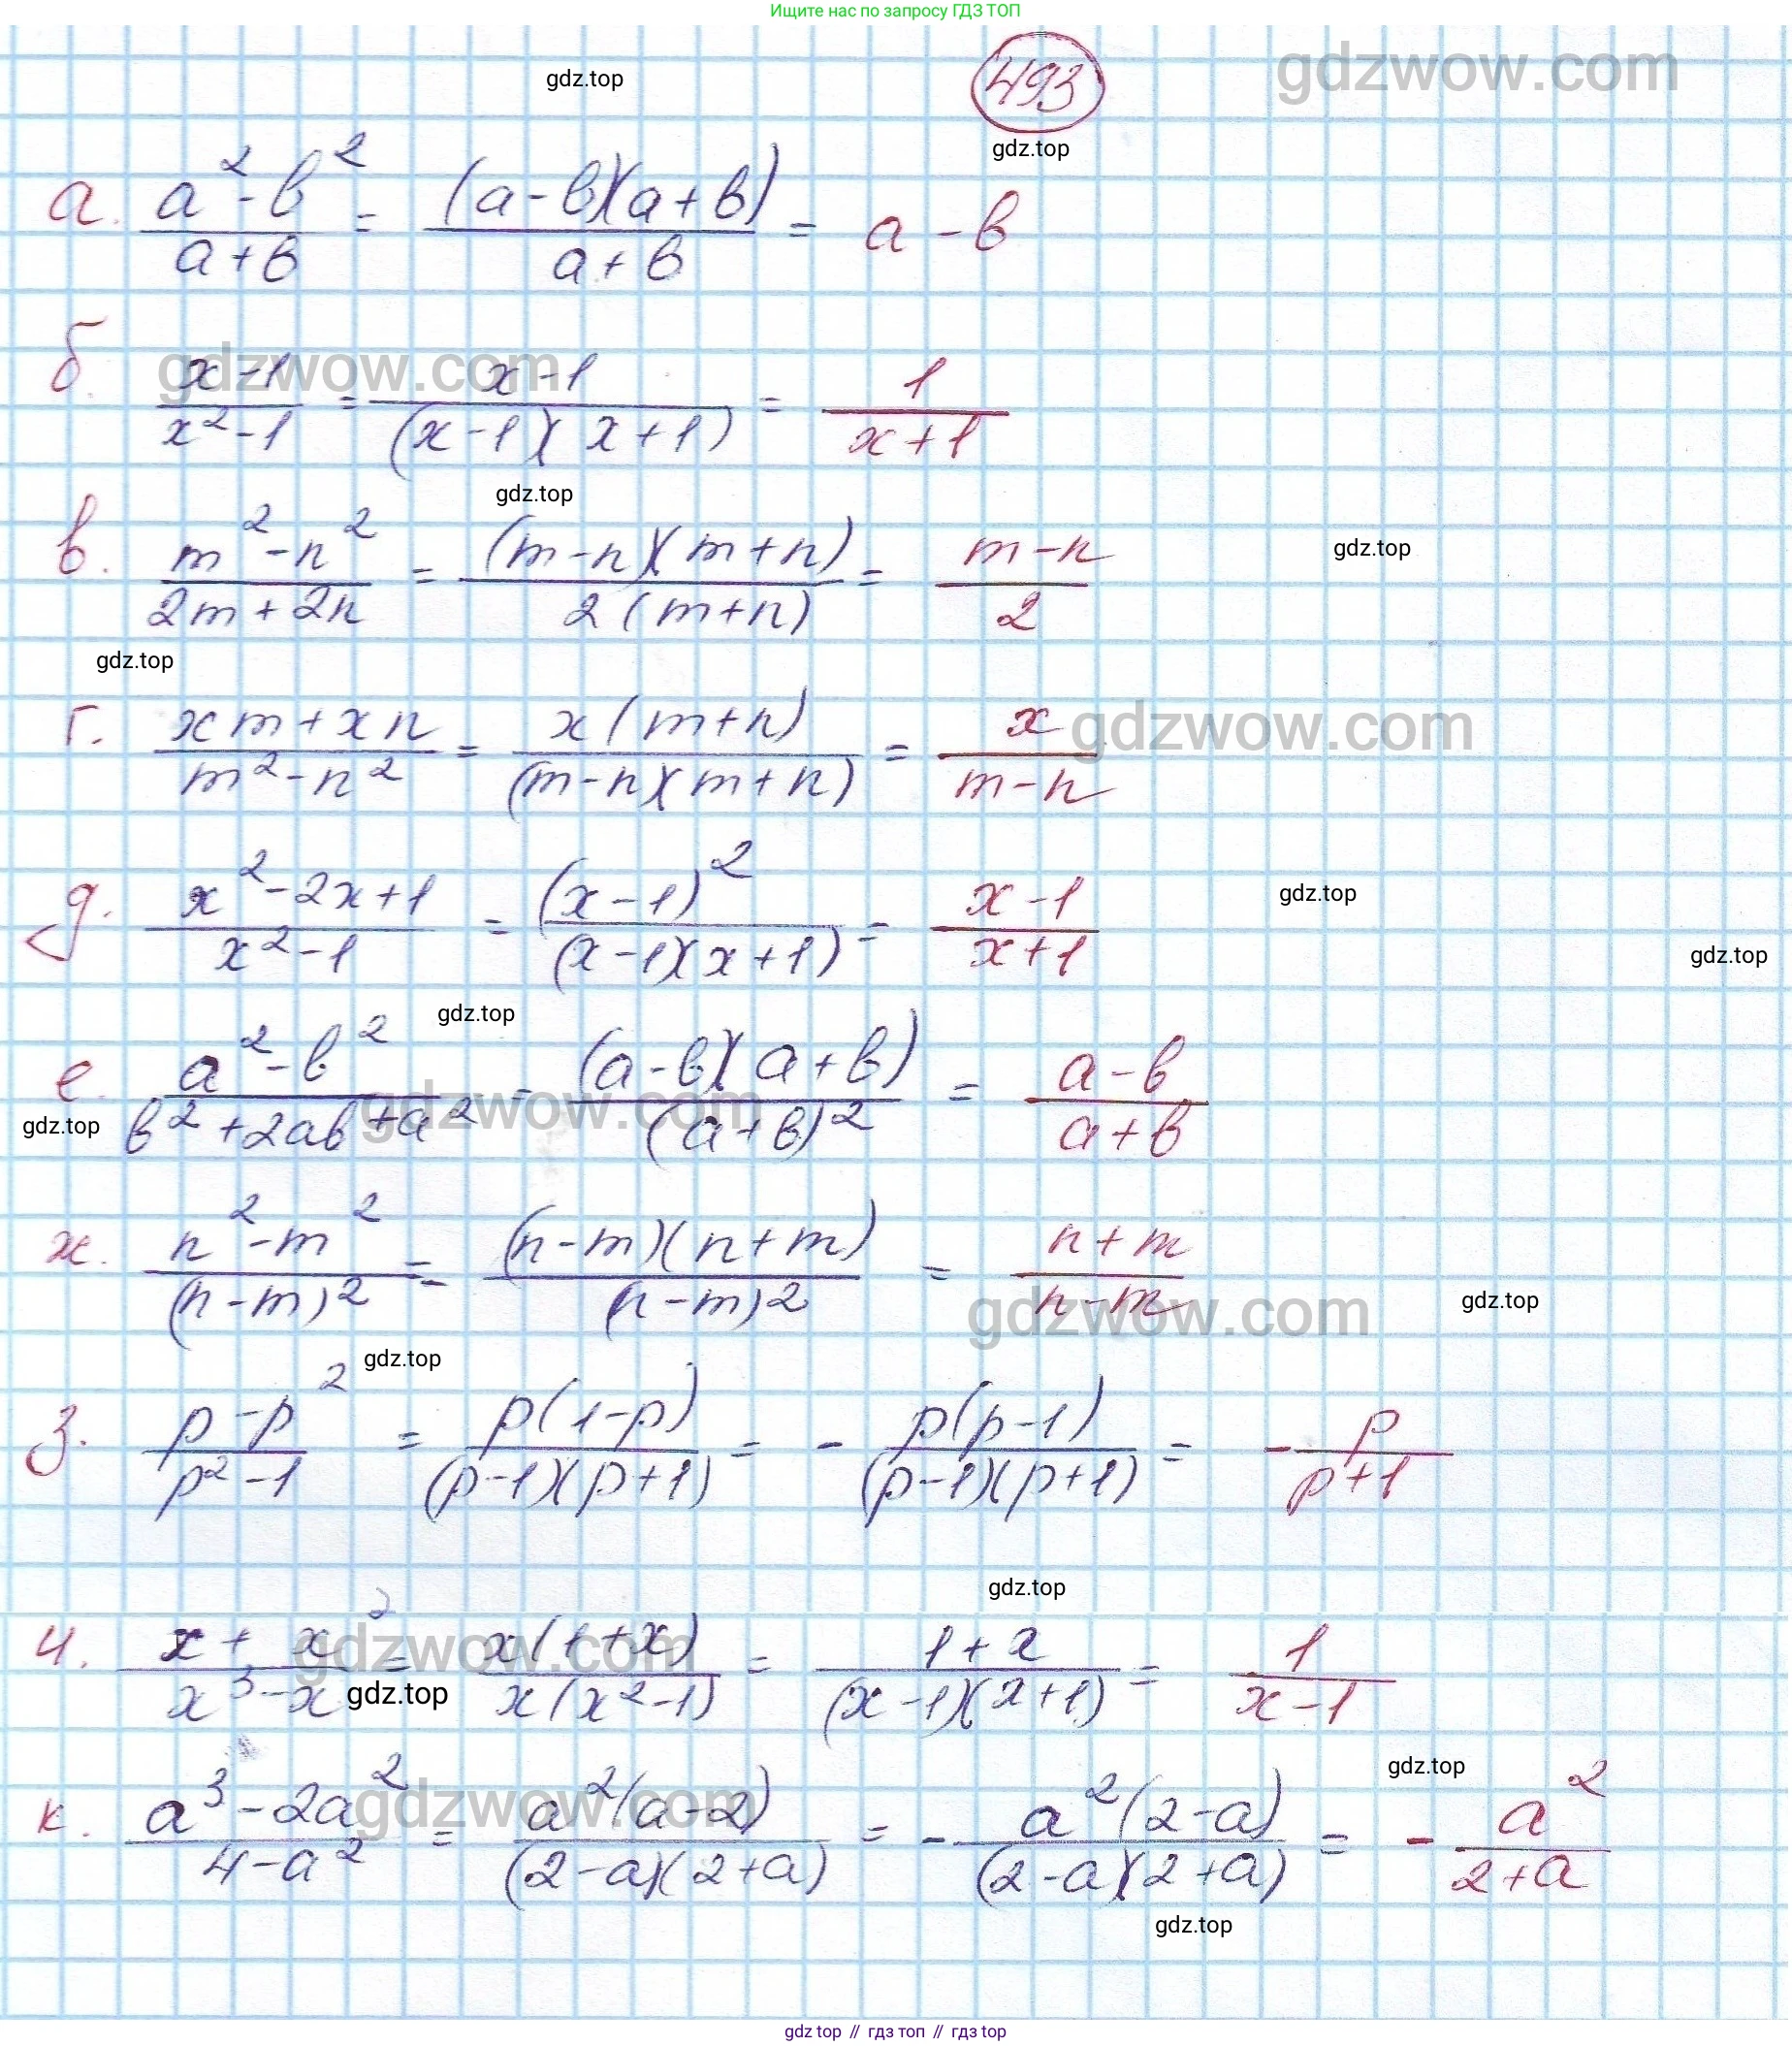 Ищите нас по запросу ГДЗ ТОП
493
gdzwow.com
gdz.top
gdz.top
а. (a² - b²)/(a + b) = ((a - b)(a + b))/(a + b) = a - b
б. (x - 1)/(x² - 1) = (x - 1)/((x - 1)(x + 1)) = 1/(x + 1)
gdzwow.com
gdz.top
в. (m² - n²)/(2m + 2n) = ((m - n)(m + n))/(2(m + n)) = (m - n)/2
gdz.top
gdz.top
г. (xm + xn)/(m² - n²) = (x(m + n))/((m - n)(m + n)) = x/(m - n)
gdzwow.com
д. (x² - 2x + 1)/(x² - 1) = (x - 1)²/((x - 1)(x + 1)) = (x - 1)/(x + 1)
gdz.top
gdz.top
gdz.top
е. (a² - b²)/(b² + 2ab + a²) = ((a - b)(a + b))/(a + b)² = (a - b)/(a + b)
gdzwow.com
gdz.top
ж. (n² - m²)/(n - m)² = ((n - m)(n + m))/(n - m)² = (n + m)/(n - m)
gdzwow.com
gdz.top
gdz.top
з. (p - p²)/(p² - 1) = (p(1 - p))/((p - 1)(p + 1)) = - (p(p - 1))/((p - 1)(p + 1)) = - p/(p + 1)
gdz.top
и. (x + x²)/(x³ - x) = (x(1 + x))/(x(x² - 1)) = (1 + x)/((x - 1)(x + 1)) = 1/(x - 1)
gdzwow.com
gdz.top
gdz.top
к. (a³ - 2a²)/(4 - a²) = (a²(a - 2))/((2 - a)(2 + a)) = - (a²(2 - a))/((2 - a)(2 + a)) = - a²/(2 + a)
gdzwow.com
gdz.top
gdz.top // гдз топ // гдз top